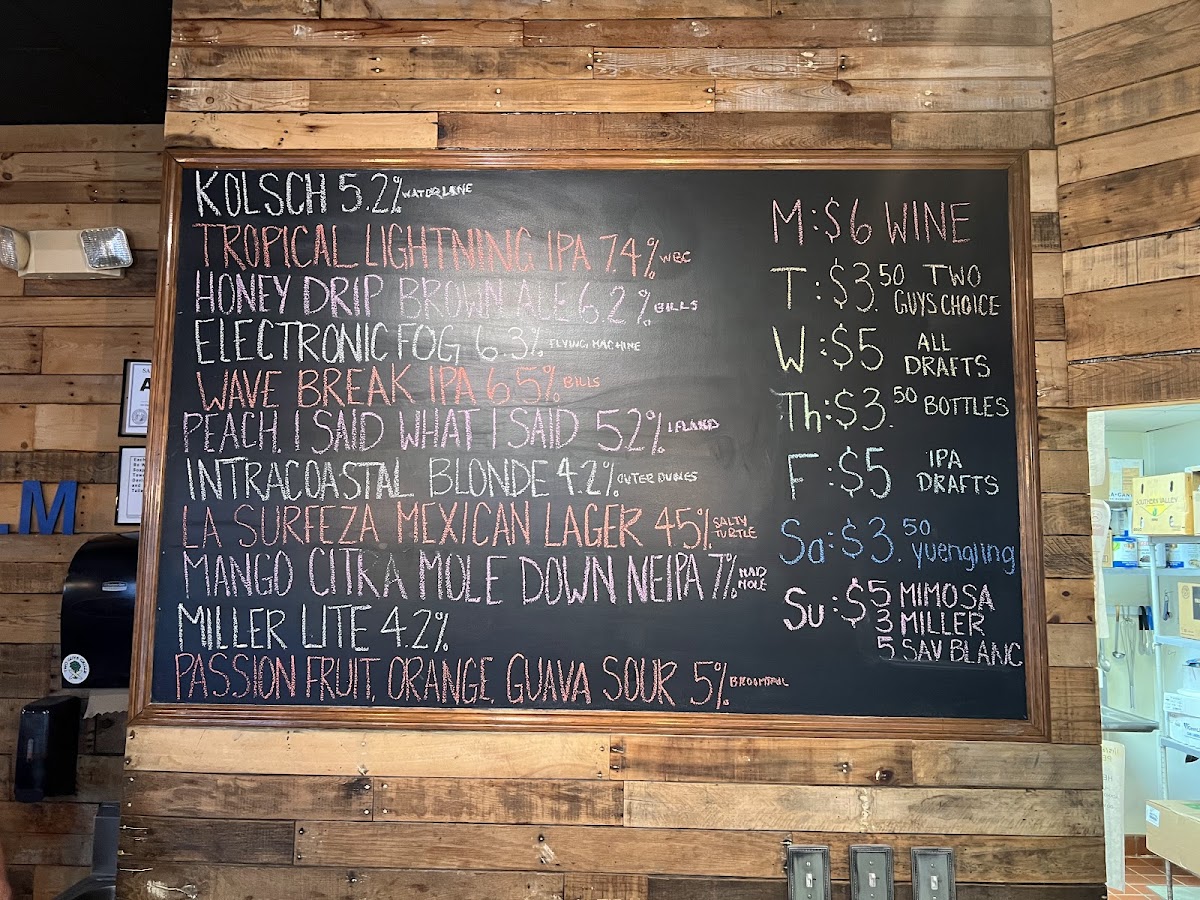 KOLSCH 5.2% WATERLINE
TROPICAL LIGHTNING IPA 7.4% WBC
HONEY DRIP BROWN ALE 6.2% BILLS
ELECTRONIC FOG 6.3% FLYING MACHINE
WAVE BREAK IPA 6.5% BILLS
PEACH, I SAID WHAT I SAID 5.2% LELAND
INTRACOASTAL BLONDE 4.2% OUTER DUNES
LA SURFEZA MEXICAN LAGER 4.5% SALTY TURTLE
MANGO CITRA MOLE DOWN NEIPA 7% MAD MOLE
MILLER LITE 4.2%
PASSION FRUIT, ORANGE, GUAVA SOUR 5% BROOMTAIL
M: $6 WINE
T: $3.50 TWO
GUYS CHOICE
W: $5 ALL
DRAFTS
Th: $3.50 BOTTLES
F: $5 IPA
DRAFTS
Sa: $3.50
yuengling
Su: $5 MIMOSA
3 MILLER
5 SAV BLANC
M
SOUTHERN VALLEY